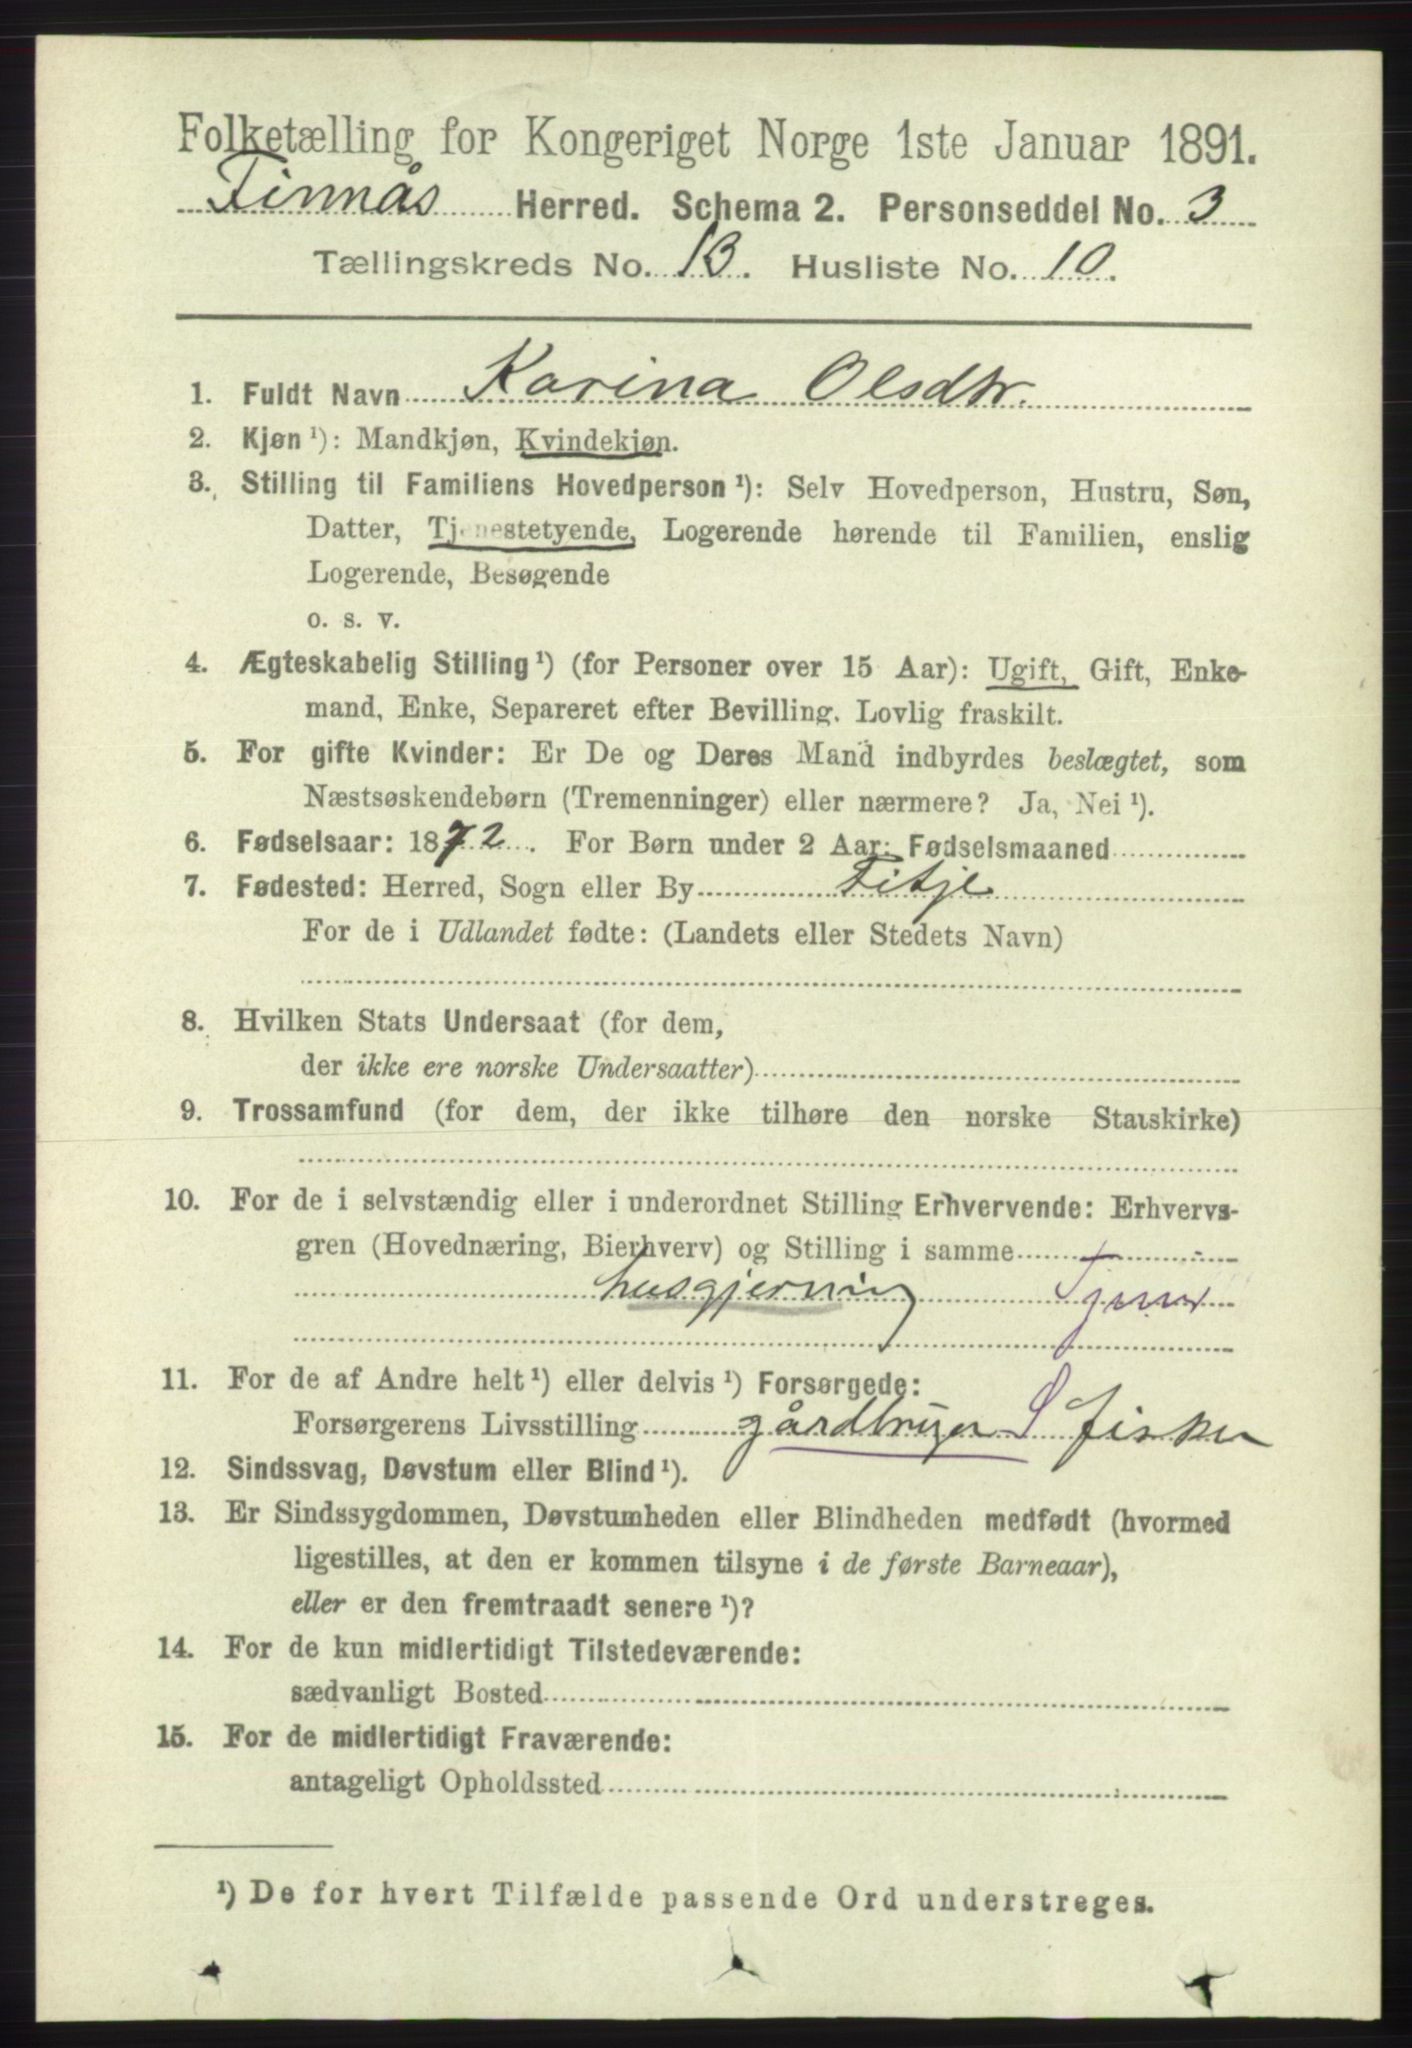 Folketælling for Kongeriget Norge 1ste Januar 1891.
Finnås Herred. Schema 2. Personseddel No. 3
Tællingskreds No. 13. Husliste No. 10.
1. Fuldt Navn Karina Olsdtr.
2. Kjøn ¹): Mandkjøn, Kvindekjøn.
3. Stilling til Familiens Hovedperson ¹): Selv Hovedperson, Hustru, Søn,
Datter, Tjenestetyende, Logerende hørende til Familien, enslig
Logerende, Besøgende
o. s. v.
4. Ægteskabelig Stilling ¹) (for Personer over 15 Aar): Ugift, Gift, Enke-
mand, Enke, Separeret efter Bevilling. Lovlig fraskilt.
5. For gifte Kvinder: Er De og Deres Mand indbyrdes beslægtet, som
Næstsøskendebørn (Tremenninger) eller nærmere? Ja, Nei ¹).
6. Fødselsaar: 1872. For Børn under 2 Aar: Fødselsmaaned
7. Fødested: Herred, Sogn eller By Fitje
For de i Udlandet fødte: (Landets eller Stedets Navn)
8. Hvilken Stats Undersaat (for dem,
der ikke ere norske Undersaatter)
9. Trossamfund (for dem, der ikke tilhøre den norske Statskirke)
10. For de i selvstændig eller i underordnet Stilling Erhvervende: Erhvervs-
gren (Hovednæring, Bierhverv) og Stilling i samme
husgjerning
11. For de af Andre helt ¹) eller delvis ¹) Forsørgede:
Forsørgerens Livsstilling gårdbruger S fisker
12. Sindssvag, Døvstum eller Blind ¹).
13. Er Sindssygdommen, Døvstumheden eller Blindheden medfødt (hvormed
ligestilles, at den er kommen tilsyne i de første Barneaar),
eller er den fremtraadt senere ¹)?
14. For de kun midlertidigt Tilstedeværende:
sædvanligt Bosted
15. For de midlertidigt Fraværende:
antageligt Opholdssted
¹) De for hvert Tilfælde passende Ord understreges.